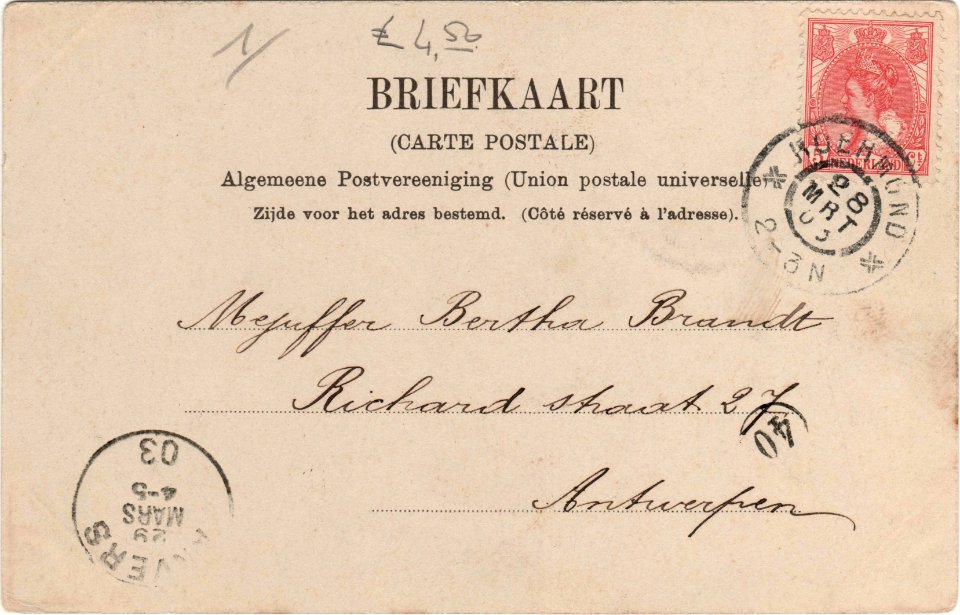 1/
£ 4,50
BRIEFKAART
(CARTE POSTALE)
Algemeene Postvereeniging (Union postale universelle)
Zijde voor het adres bestemd. (Côté réservé à l'adresse).
NEDERLAND
ROERMOND
28
MRT
03
2-3N
Mejuffer Bertha Brandt
Richard straat 27
40
Antwerpen
ANVERS
29
MARS
4-5
03